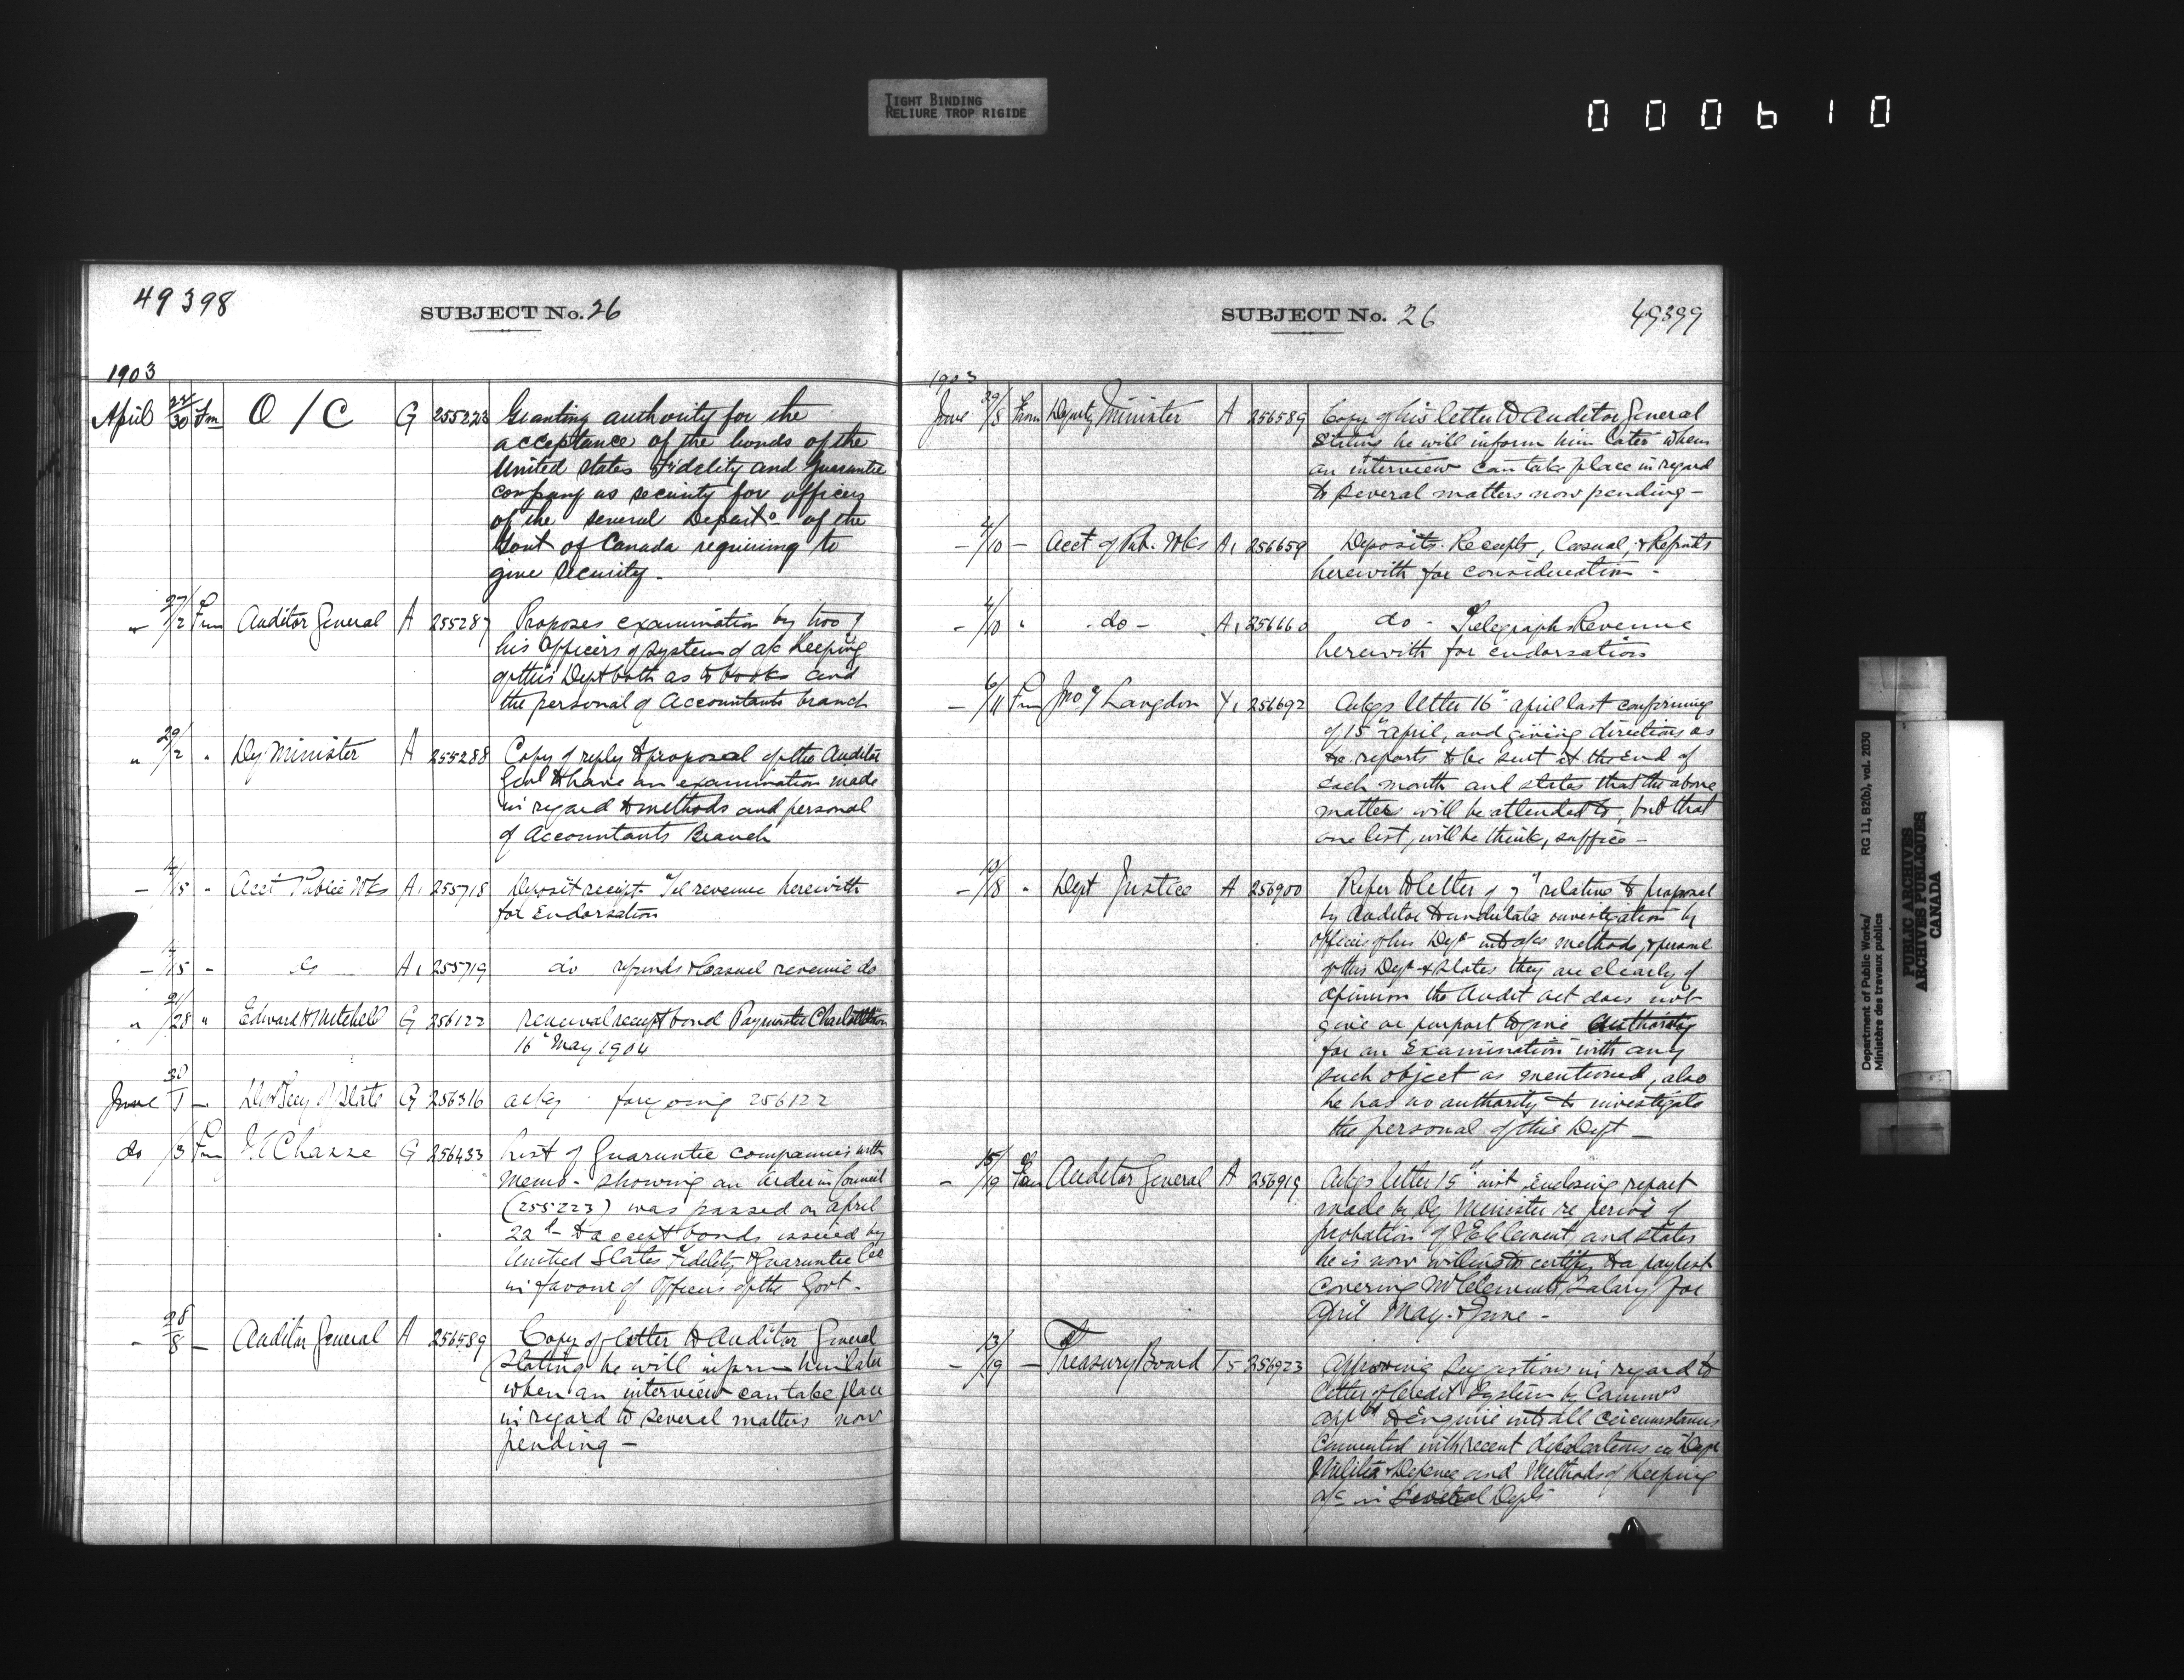 TIGHT BINDING
RELIURE TROP RIGIDE
000610
49398
SUBJECT No. 26
1903
April 22/30 Fm O/C G 255223 Granting authority for the
acceptance of the bonds of the
United States Fidelity and Guarantee
company as security for officers
of the several Departs of the
Govt of Canada requiring to
give security.
" 27/2 Fm Auditor General A 255287 Proposes examination by two of
his officers of system of a/c keeping
of this Dept both as to books and
the personal of Accountants branch
" 29/2 " Dy Minister A 255288 Copy of reply to proposal of the Auditor
Genl to have an examination made
in regard to methods and personal
of Accountants Branch
- /15 " Acct Public Wks A1 255718 Deposit receipt Tel revenue herewith
for Endorsation
- /15 - do A1 255719 do refunds & Casual revenue do
" 21/28 " Edward H Mitchell G 256122 renewal receipt bond Paymaster Charlottetown
16" May 1904
June 30/1 - Secy of State G 256316 ackg foregoing 256122
do /3 Fm Chasse G 256433 List of Guarantee companies with
Memo - showing an Order in Council
(255223) was passed on April
22d to accept bonds issued by
United States Fidelity & Guarantee Co
in favour of Officers of the Govt.
- 28/8 - Auditor General A 256589 Copy of letter to Auditor General
stating he will inform him later
when an interview can take place
in regard to several matters now
pending -
SUBJECT No. 26
49399
1903
June 29/8 From Deputy Minister A 256589 Copy of his letter to Auditor General
stating he will inform him later when
an interview can take place in regard
to several matters now pending -
- /10 - Acct of Pub. Wks A1 256659 Deposits Receipts, Casual, & Refunds
herewith for consideration -
- /10 " do - A1 256660 do - Telegraph Revenue
herewith for endorsation
- 6/11 Fm Jno Langdon Y1 256692 Ackgs letter 16" april last confirming
of 15" april, and giving directions as
to reports to be sent at the end of
each month and states that the above
matter will be attended to, but that
one list, will he think, suffice -
- /18 " Dept Justice A 256900 Refer to letter of 7" relative to proposal
by Auditor to undertake investigation by
officers of his Dept into a/c methods, & personl
of this Dept & states they are clearly of
opinion the Audit act does not
give or purport to give Authority
for an Examination with any
such object as mentioned, also
he has no authority to investigate
the personal of this Dept -
- 15/19 Fm Auditor General A 256919 Ackgs letter 15" inst enclosing report
made by Dy Minister re period of
probation of Clement and states
he is now willing to certify to a paylist
covering Mr Clements Salary for
April May & June -
- 13/19 - Treasury Board T5 256923 Approving suggestions in regard to
Letter of Credit System by Commrs
appd to Enquire into all circumstances
connected with recent defalcations in Dept
Militia & Defence and Methods of keeping
a/c in Several Depts
Department of Public Works/
Ministère des travaux publics
RG 11, B2(b), vol. 2030
PUBLIC ARCHIVES
ARCHIVES PUBLIQUES
CANADA